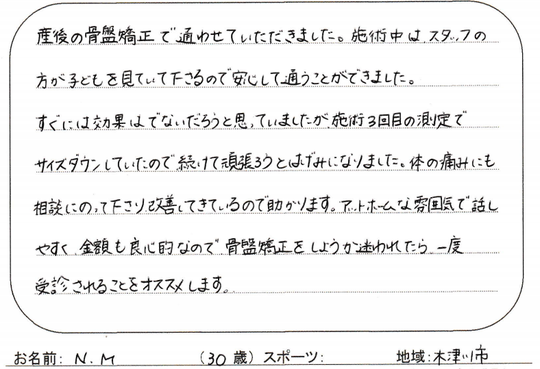 産後の骨盤矯正で通わせていただきました。施術中は、スタッフの
方が子どもを見ていて下さるので安心して通うことができました。
すぐには効果はでないだろうと思っていましたが、施術3回目の測定で
サイズダウンしていたので続けて頑張ろうとはげみになりました。体の痛みにも
相談にのって下さり改善してきているので助かります。アットホームな雰囲気で話し
やすく、金額も良心的なので、骨盤矯正をしようか迷われたら、一度
受診されることをオススメします。
お名前: N.M (30歳) スポーツ: 地域: 木津川市